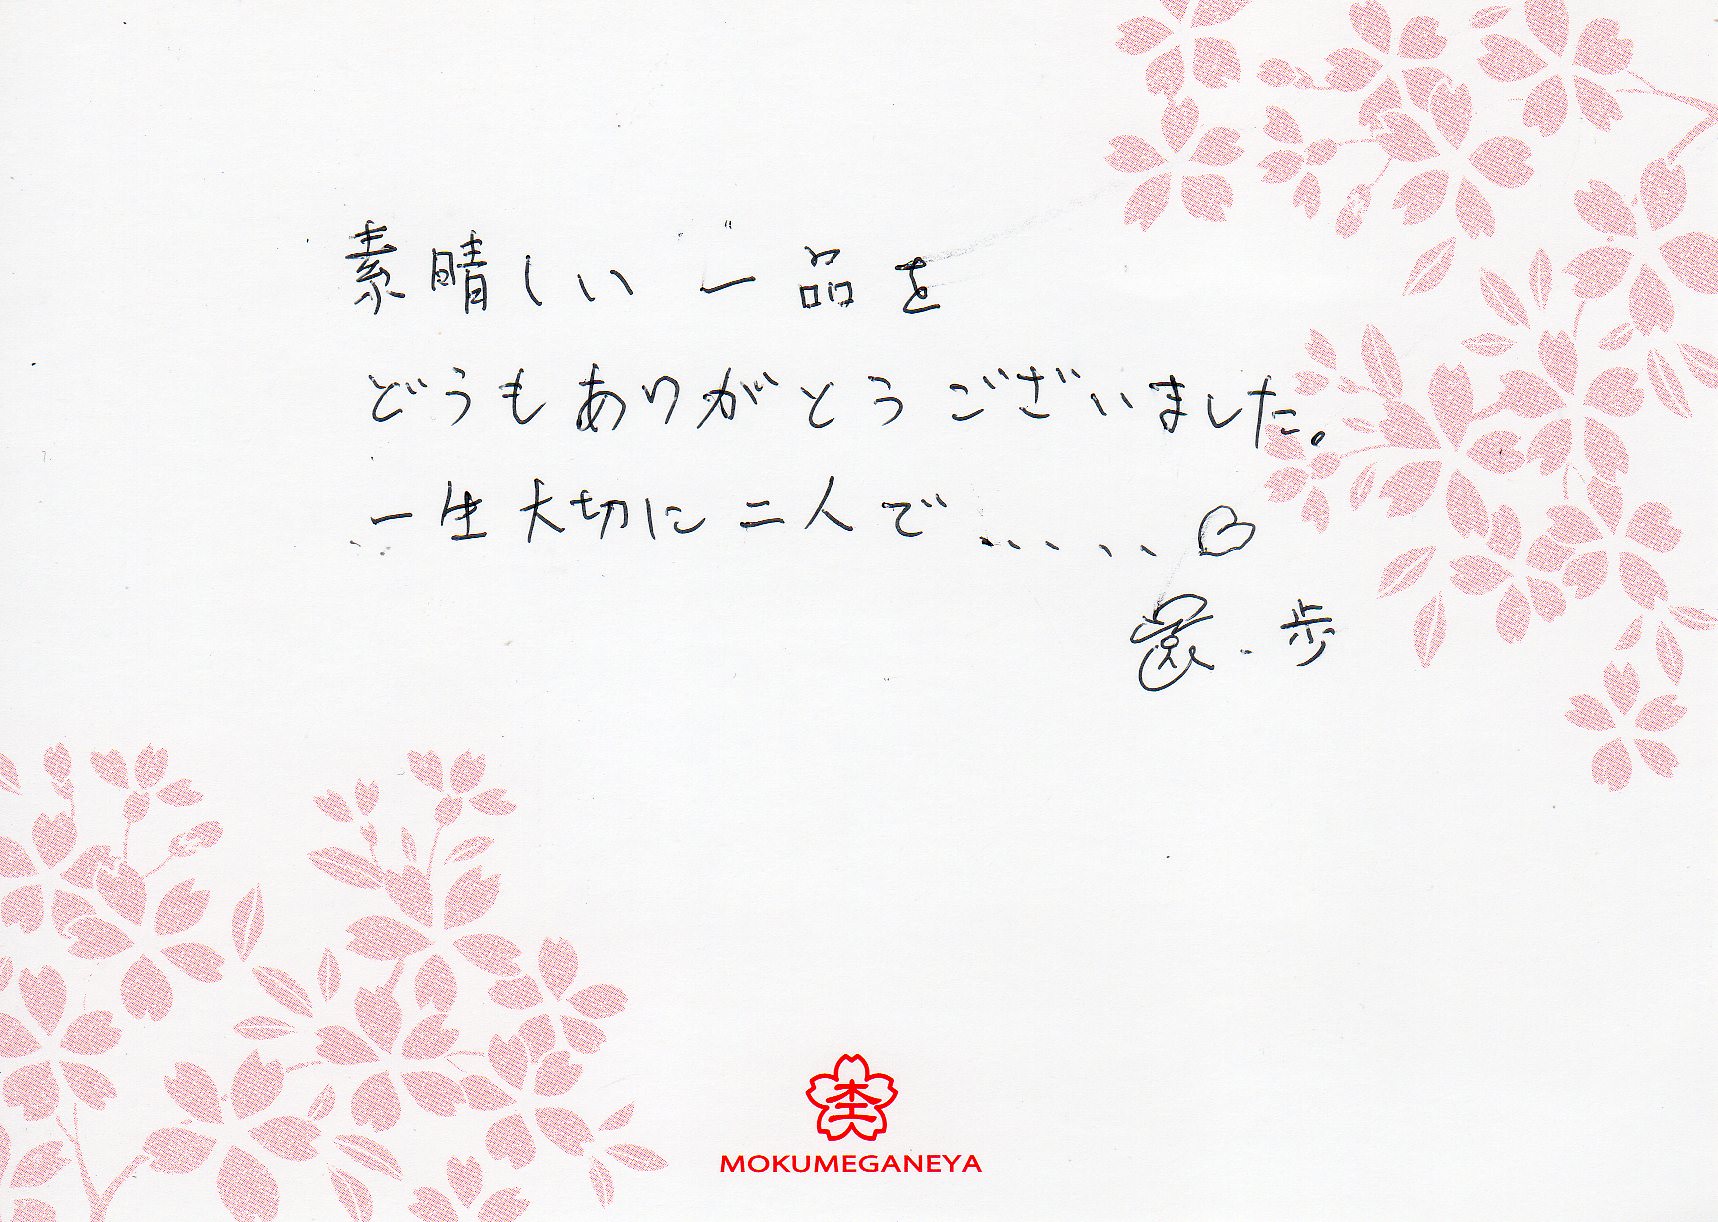 素晴しい一品を
どうもありがとうございました。
一生大切に二人で......♡
・歩
MOKUMEGANEYA